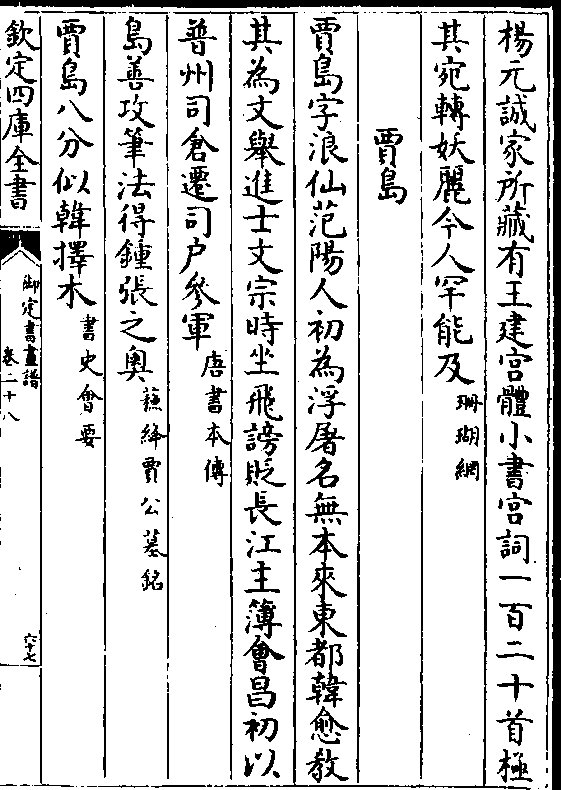 楊元誠家所藏有王建宫體小書宫詞一百二十首極
其宛轉妖麗今人罕能及珊瑚網
賈島
賈島字浪仙范陽人初為浮屠名無本來東都韓愈教
其為文舉進士文宗時坐飛謗貶長江主簿會昌初以
普州司倉遷司户參軍唐書本傳
島善攻筆法得鍾張之奥蘇絳賈公墓銘
賈島八分似韓擇木書史會要
欽定四庫全書
御定書畫譜
卷二十八
六十七